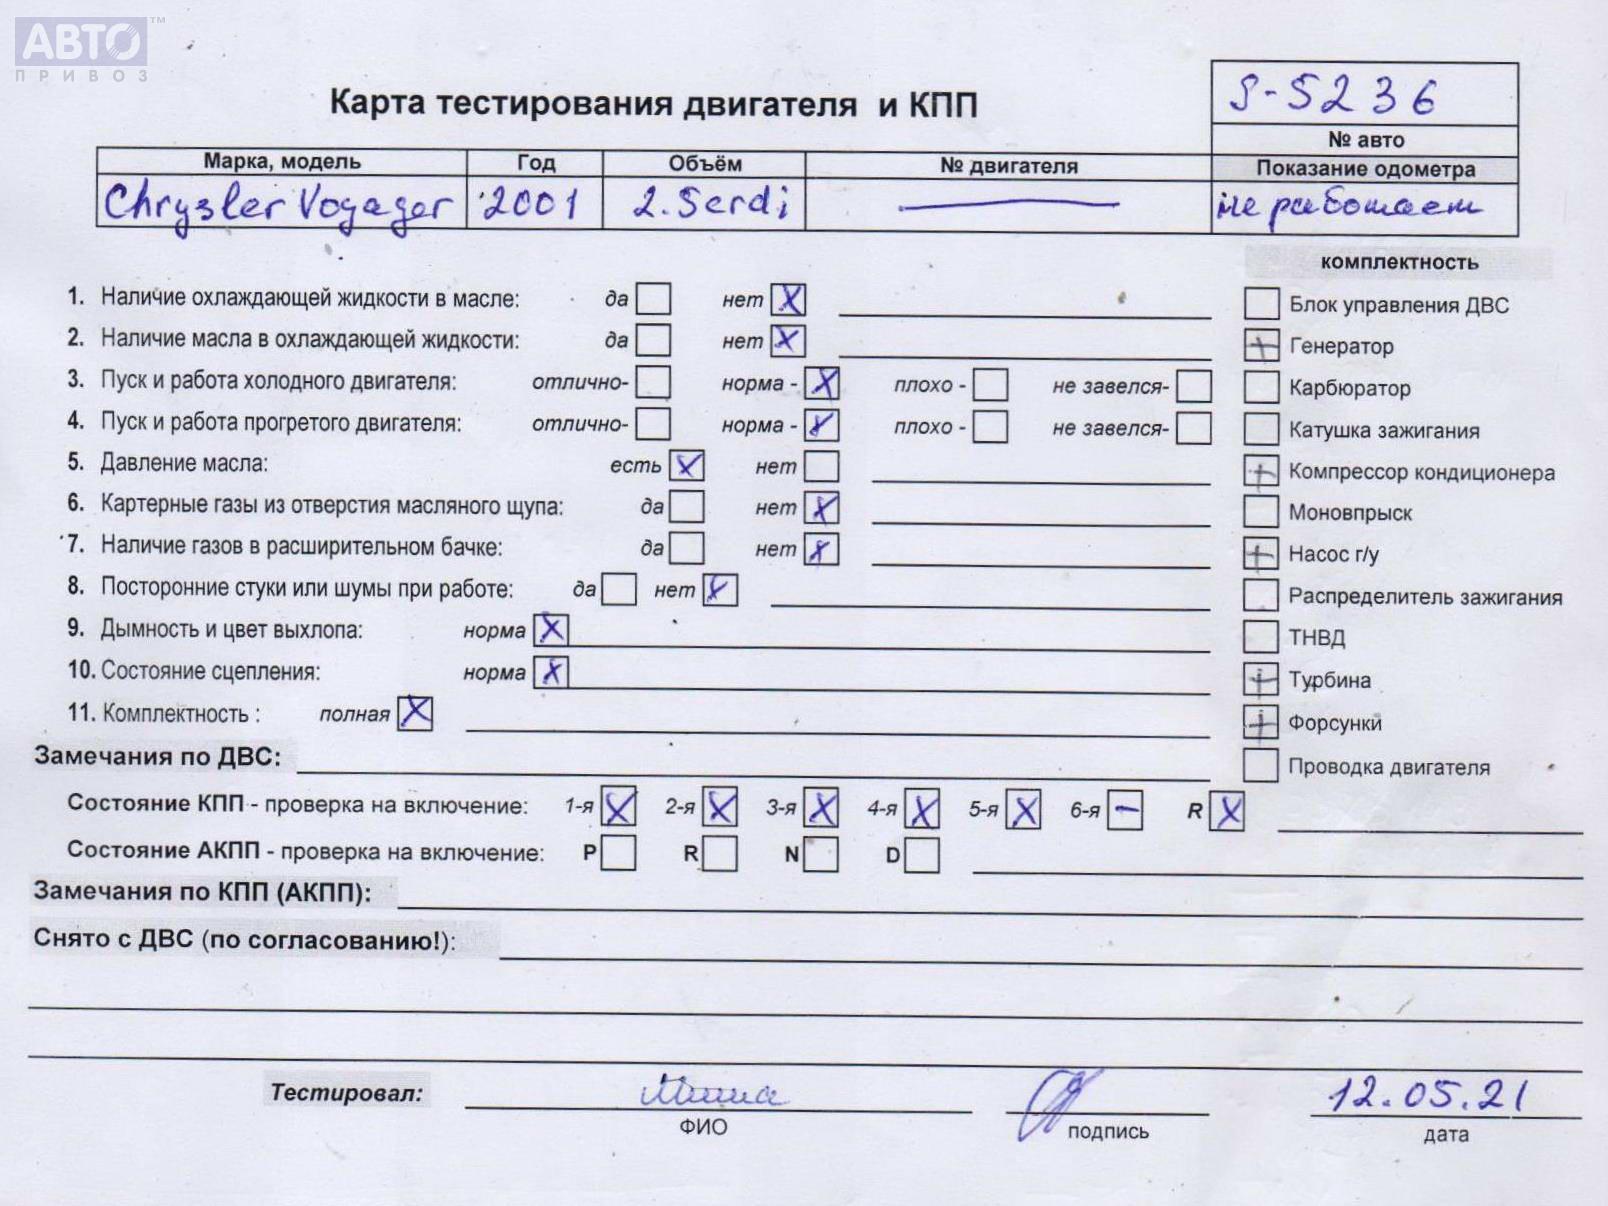 АВТО™
ПРИВОЗ
Карта тестирования двигателя и КПП
S-5236
№ авто
Марка, модель Год Объём № двигателя Показание одометра
Chrysler Voyager 2001 2.5crdi — не работает
комплектность
1. Наличие охлаждающей жидкости в масле: да нет X
Блок управления ДВС
2. Наличие масла в охлаждающей жидкости: да нет X
+ Генератор
3. Пуск и работа холодного двигателя: отлично- норма - X плохо - не завелся-
Карбюратор
4. Пуск и работа прогретого двигателя: отлично- норма - X плохо - не завелся-
Катушка зажигания
5. Давление масла: есть X нет
+ Компрессор кондиционера
6. Картерные газы из отверстия масляного щупа: да нет X
Моновпрыск
7. Наличие газов в расширительном бачке: да нет X
+ Насос г/у
8. Посторонние стуки или шумы при работе: да нет X
Распределитель зажигания
9. Дымность и цвет выхлопа: норма X
ТНВД
10. Состояние сцепления: норма X
+ Турбина
11. Комплектность : полная X
+ Форсунки
Замечания по ДВС:
Проводка двигателя
Состояние КПП - проверка на включение: 1-я X 2-я X 3-я X 4-я X 5-я X 6-я – R X
Состояние АКПП - проверка на включение: P R N D
Замечания по КПП (АКПП):
Снято с ДВС (по согласованию!):
Тестировал: Миша 12.05.21
ФИО подпись дата